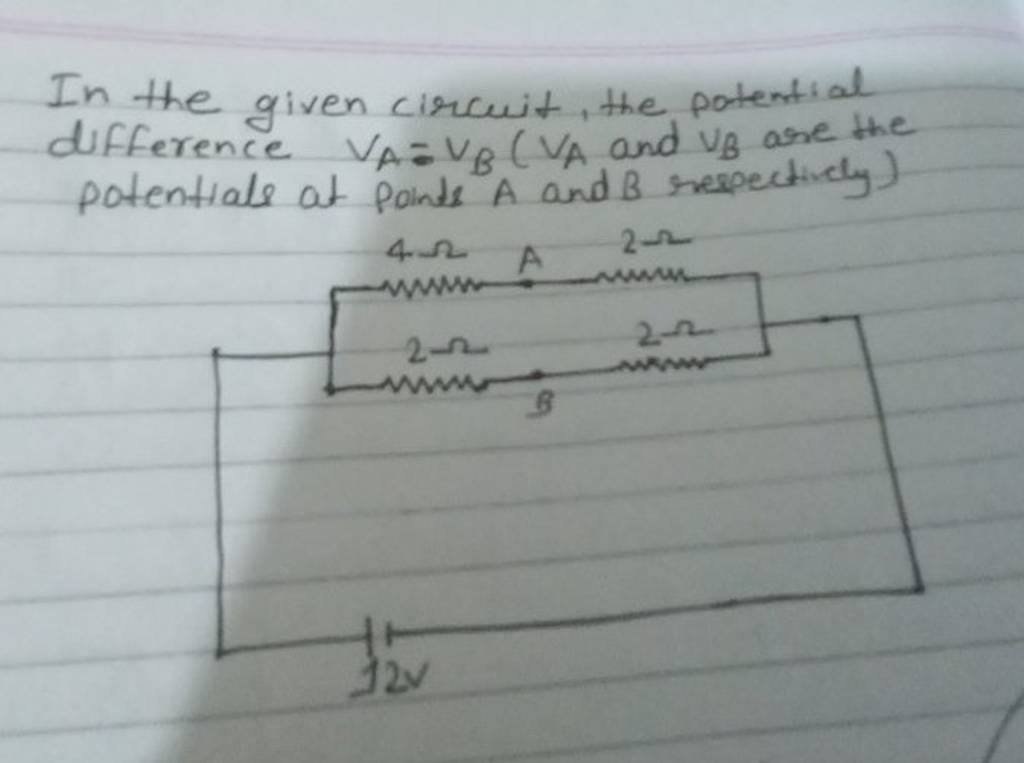 In the given circuit, the potential
difference VA = VB ( VA and VB are the
potentials at points A and B respectively)
4Ω A 2Ω
2Ω 2Ω
B
12V